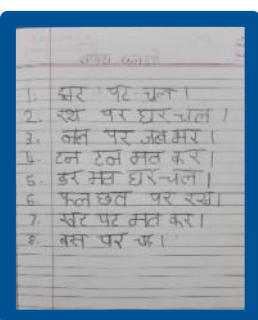 वाक्य बनाओ
1. झट पट चल।
2. रथ पर घर चल।
3. नल पर जल भर।
4. टन टन मत कर।
5. डर मत घर चल।
6. फल छत पर रख।
7. खट पट मत कर।
8. बस पर चढ़।